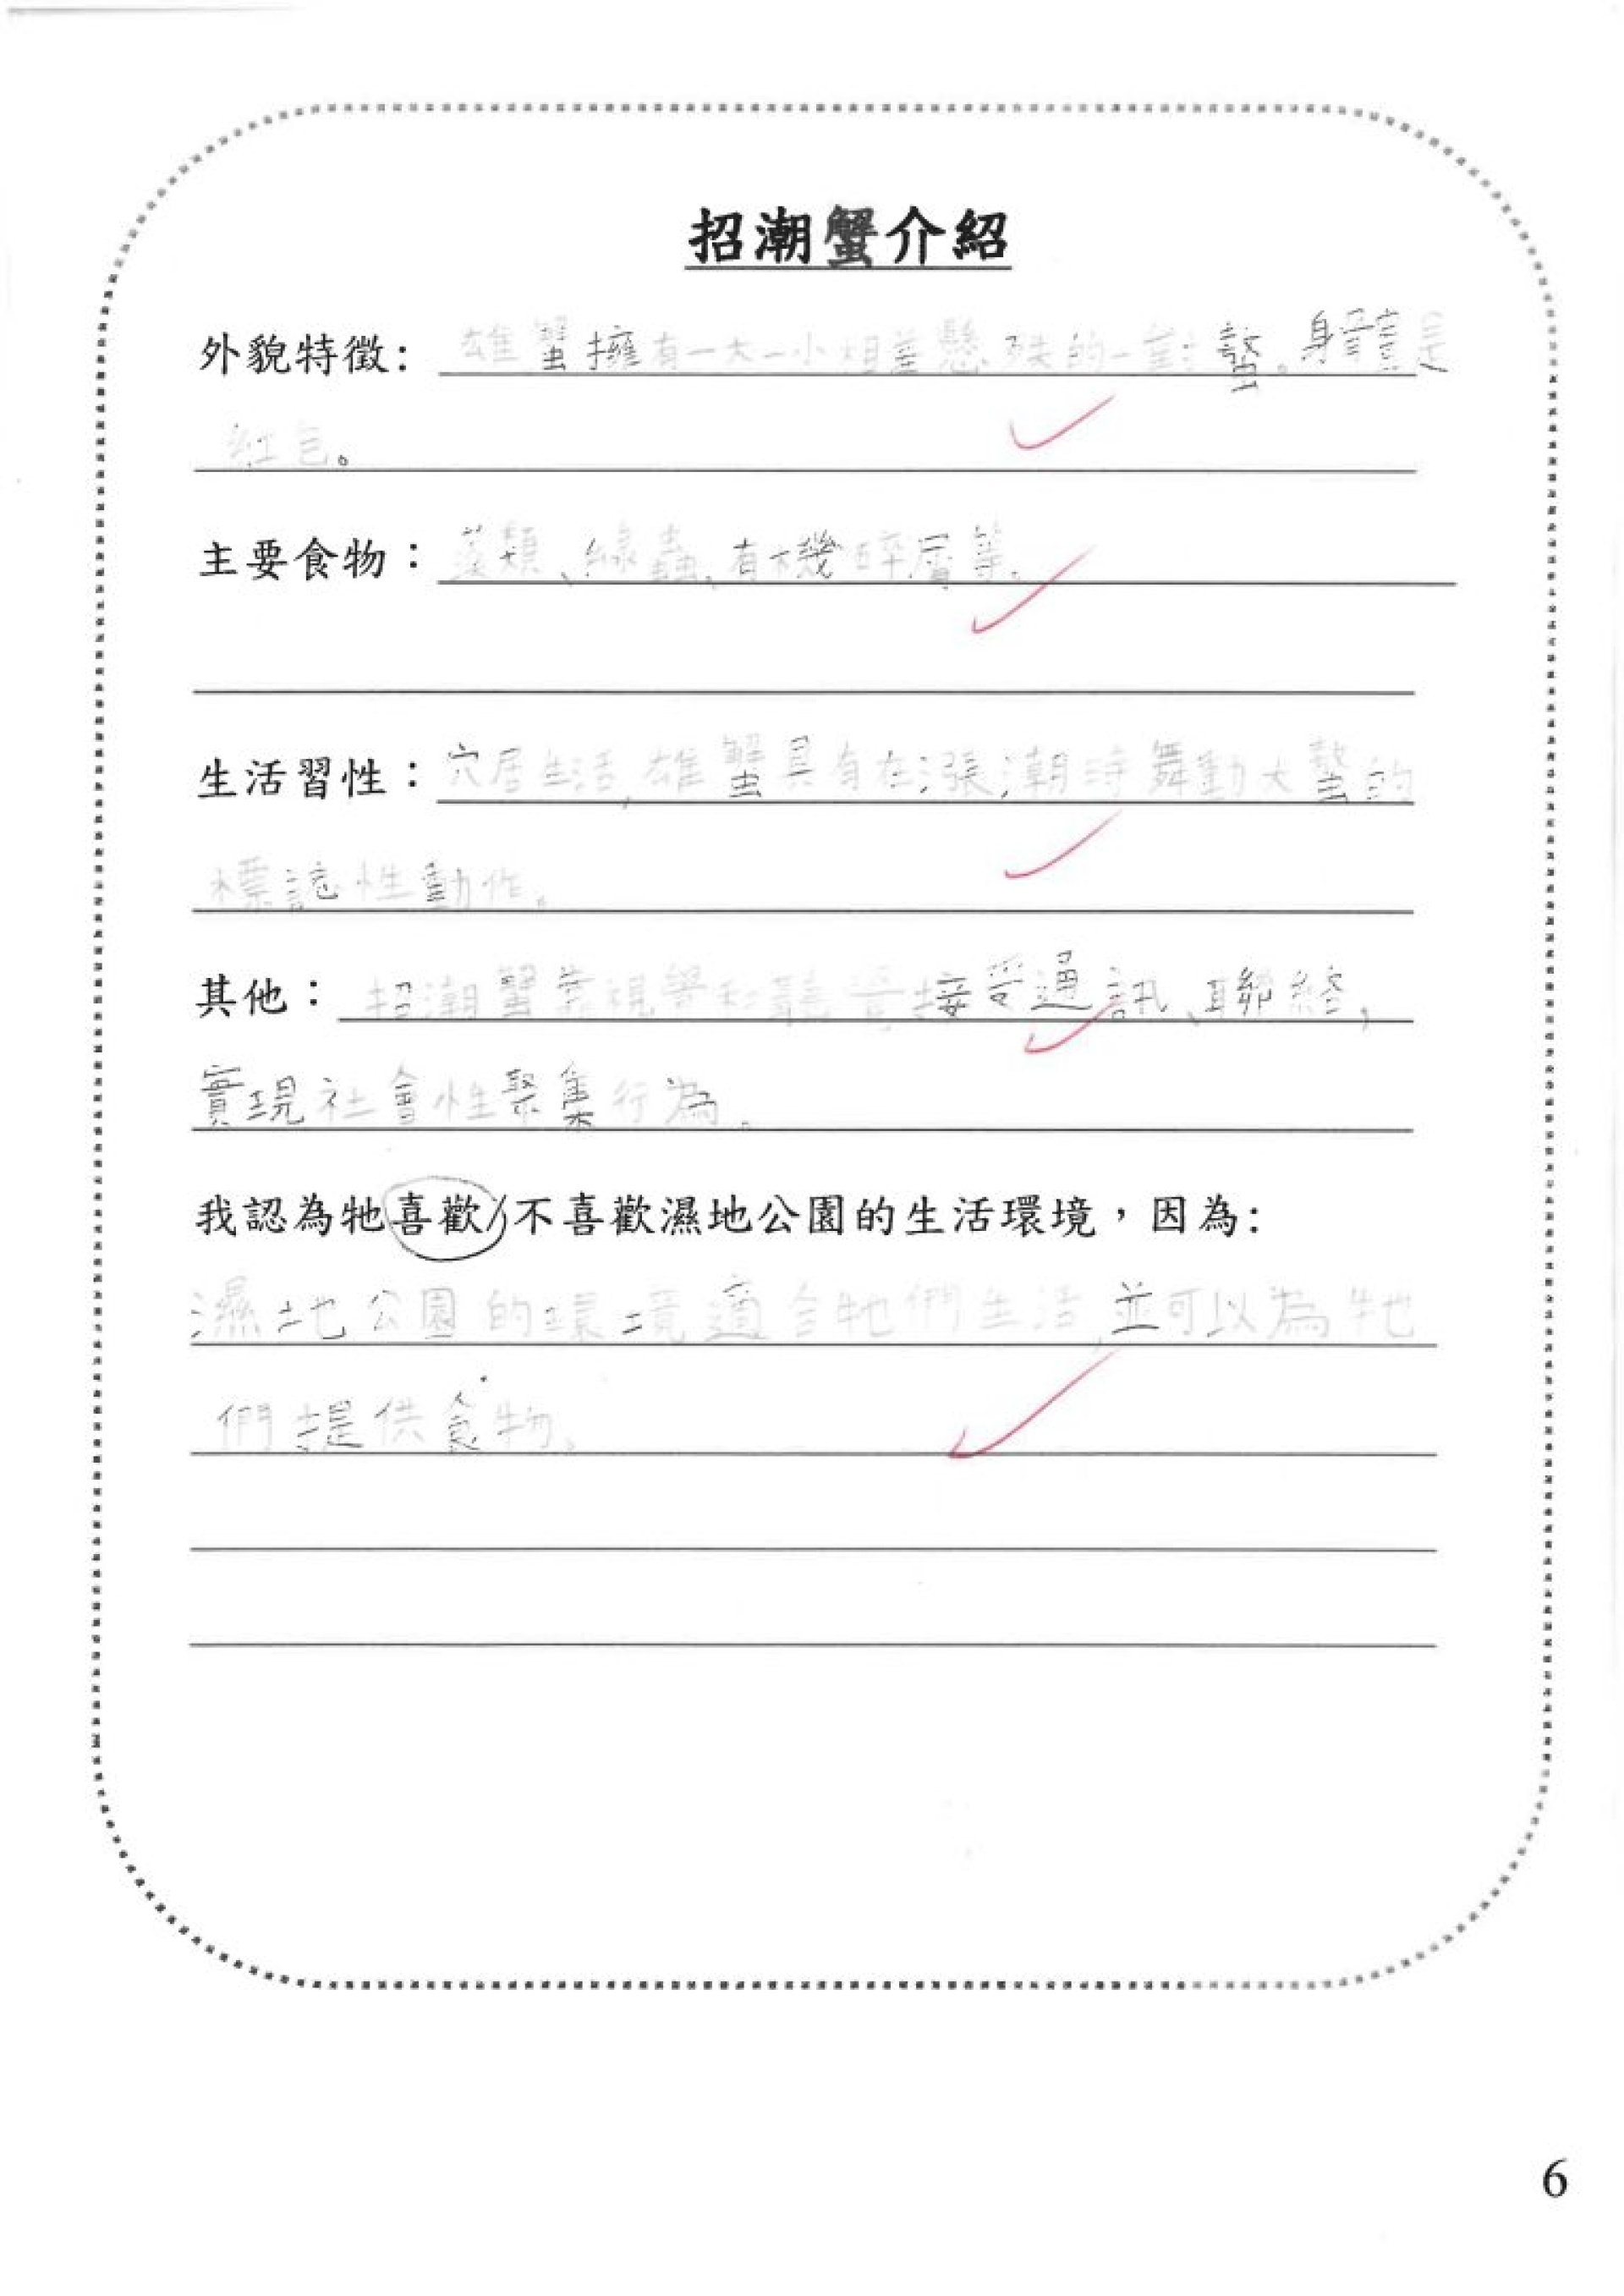 招潮蟹介紹
外貌特徵: 雄蟹擁有一大一小相差懸殊的一對螯。身體是
紅色。
主要食物：藻類、綠蟲、有機碎屑等。
生活習性：穴居生活,雄蟹具有在漲潮時舞動大螯的
標誌性動作。
其他：招潮蟹靠視覺和聽覺接受通訊、聯絡,
實現社會性聚集行為。
我認為牠喜歡/不喜歡濕地公園的生活環境，因為:
濕地公園的環境適合牠們生活,並可以為牠
們提供食物。
6